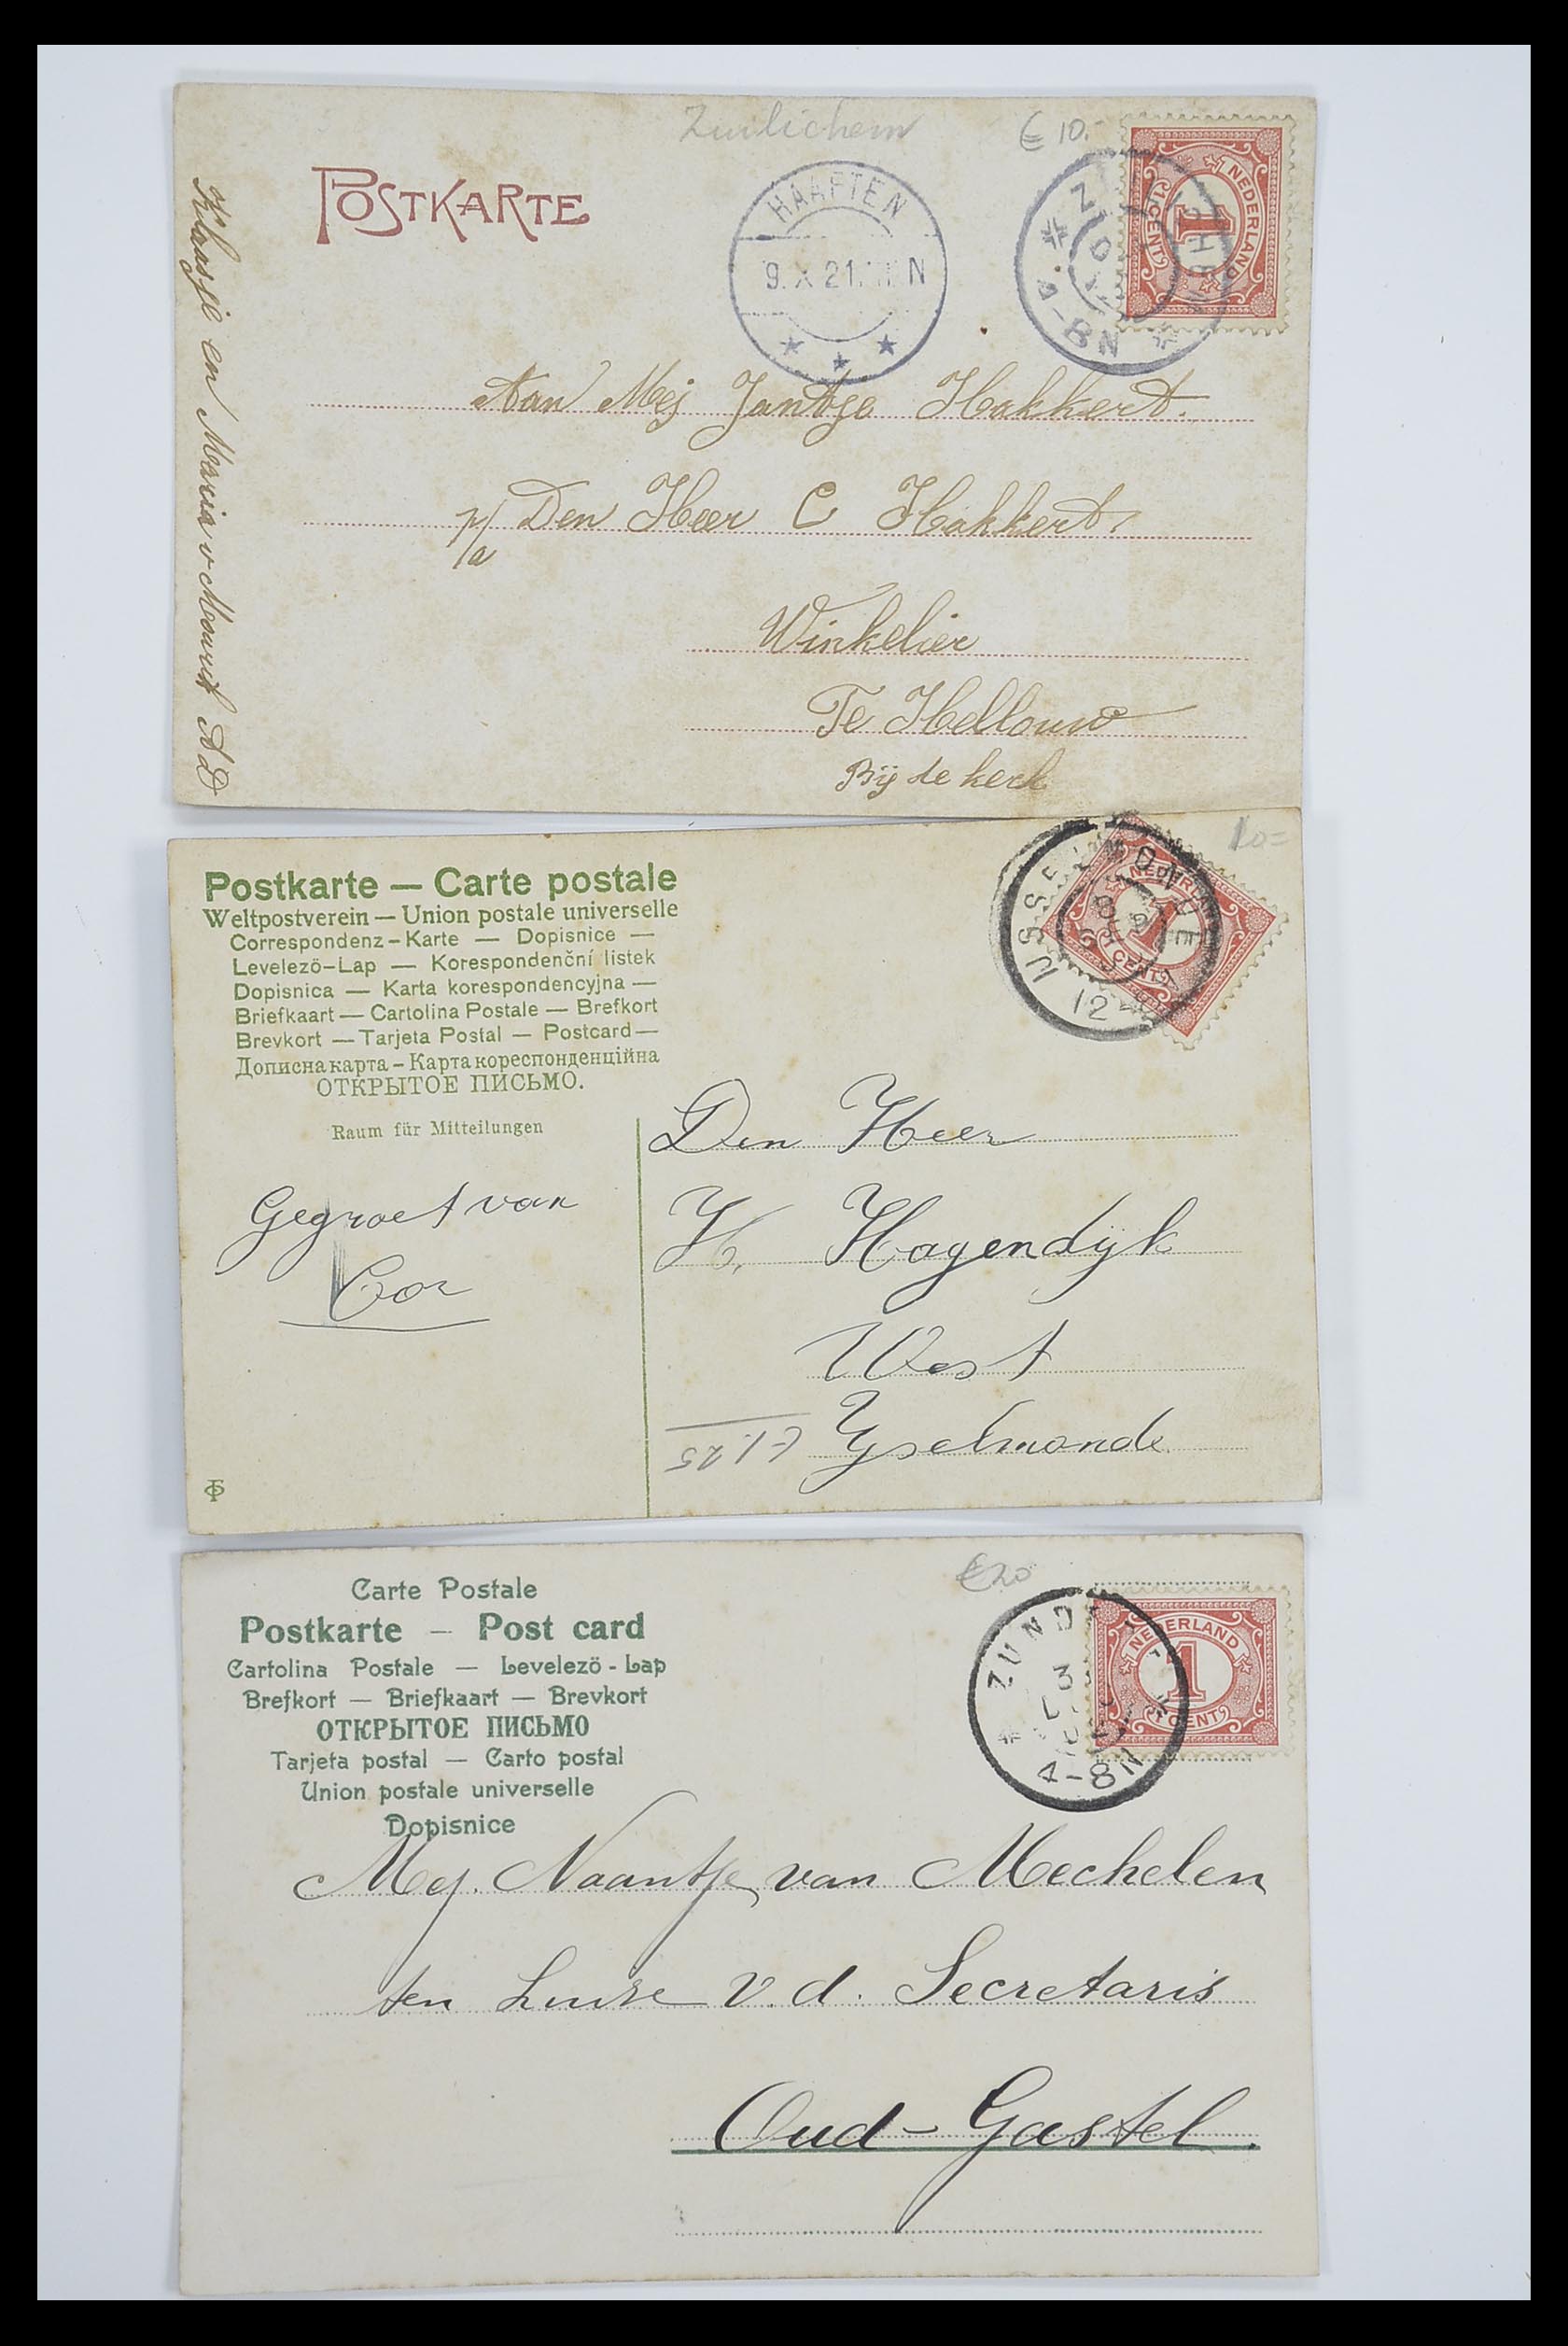 Zuilichem
€ 10.-
POSTKARTE
HAAFTEN
9. X 21. N
4-8N
NEDERLAND
1
CENT
Aan Mej Jantje Hakkert.
p/a Den Heer C Hakkert,
Winkelier
Te Hellouw
Bij de kerk
Klaasje en Maria v Mourik AD
Postkarte — Carte postale
Weltpostverein — Union postale universelle
Correspondenz-Karte — Dopisnice —
Levelezö-Lap — Korespondenční listek
Dopisnica — Karta korespondencyjna —
Briefkaart — Cartolina Postale — Brefkort
Brevkort — Tarjeta Postal — Postcard —
Дописна карта – Карта кореспонденційна
ОТКРЫТОЕ ПИСЬМО.
Raum für Mitteilungen
IJSSELMONDE
NEDERLAND
1
CENT
Gegroet van
Cor
Den Heer
H. Hogendijk
West
Yselmonde
€20
Carte Postale
Postkarte — Post card
Cartolina Postale — Levelezö-Lap
Brefkort — Briefkaart — Brevkort
ОТКРЫТОЕ ПИСЬМО
Tarjeta postal — Carto postal
Union postale universelle
Dopisnice
ZUND
4-8N
NEDERLAND
1
CENT
Mej. Naantje van Mechelen
ten huize v. d. Secretaris
Oud-Gastel.